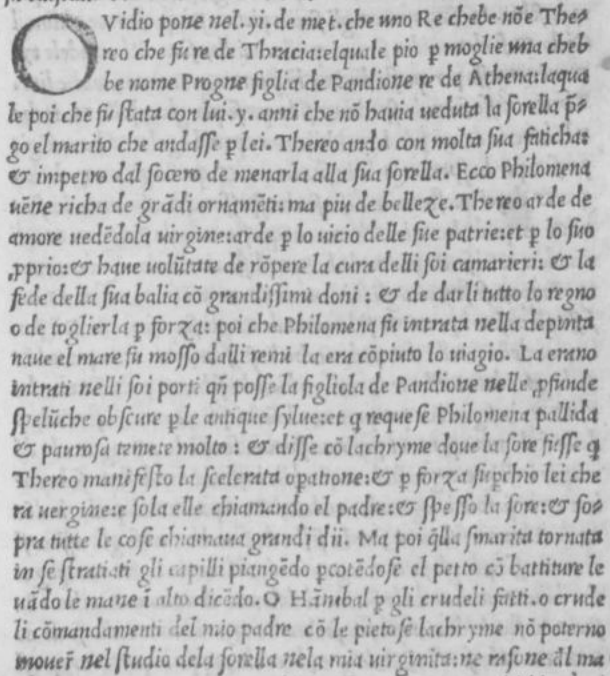 OVidio pone nel. yi. de met. che uno Re chebe nōe The⸗
reo che fu re de Thracia: elquale pio ꝑ moglie una cheb
be nome Progne figlia de Pandione re de Athena: laqua
le poi che fu stata con lui. y. anni che nō hauia ueduta la sorella p̄⸗
go el marito che andasse ꝑ lei. Thereo ando con molta sua faticha:
& impetro dal socero de menarla alla sua sorella. Ecco Philomena
uēne richa de grādi ornamēti: ma piu de belleze. Thereo arde de
amore uedēdola uirgine: arde ꝑ lo uicio delle sue patrie: et ꝑ lo suo
ꝓprio: & haue uolūtate de rōpere la cura delli soi camarieri: & la
fede della sua balia cō grandissimi doni : & de darli tutto lo regno
o de toglierla ꝑ forza: poi che Philomena fu intrata nella depinta
naue el mare fu mosso dalli remi la era cōpiuto lo uiagio. La erano
intrati nelli soi porti qn̄ posse la figliola de Pandione nelle ꝓfunde
spelūche obscure ꝑ le antique sylue: et q requese Philomena pallida
& paurosa temete molto : & disse cō lachryme doue la sore fusse q̄
Thereo manifesto la scelerata opatione: & ꝑ forza suꝑchio lei che
ra uergine: e sola elle chiamando el padre: & spesso la sore: & so⸗
pra tutte le cose chiamaua grandi dii. Ma poi q̄lla smarita tornata
in se stratiati gli capilli piangēdo ꝑcotēdose el petto cō battiture le
uādo le mane ī alto dicēdo. O Hānibal ꝑ gli crudeli fatti. o crude
li cōmandamenti del mio padre cō le pietose lachryme nō poterno
mouer̄ nel studio dela sorella nela mia uirginita: ne rasone āl ma